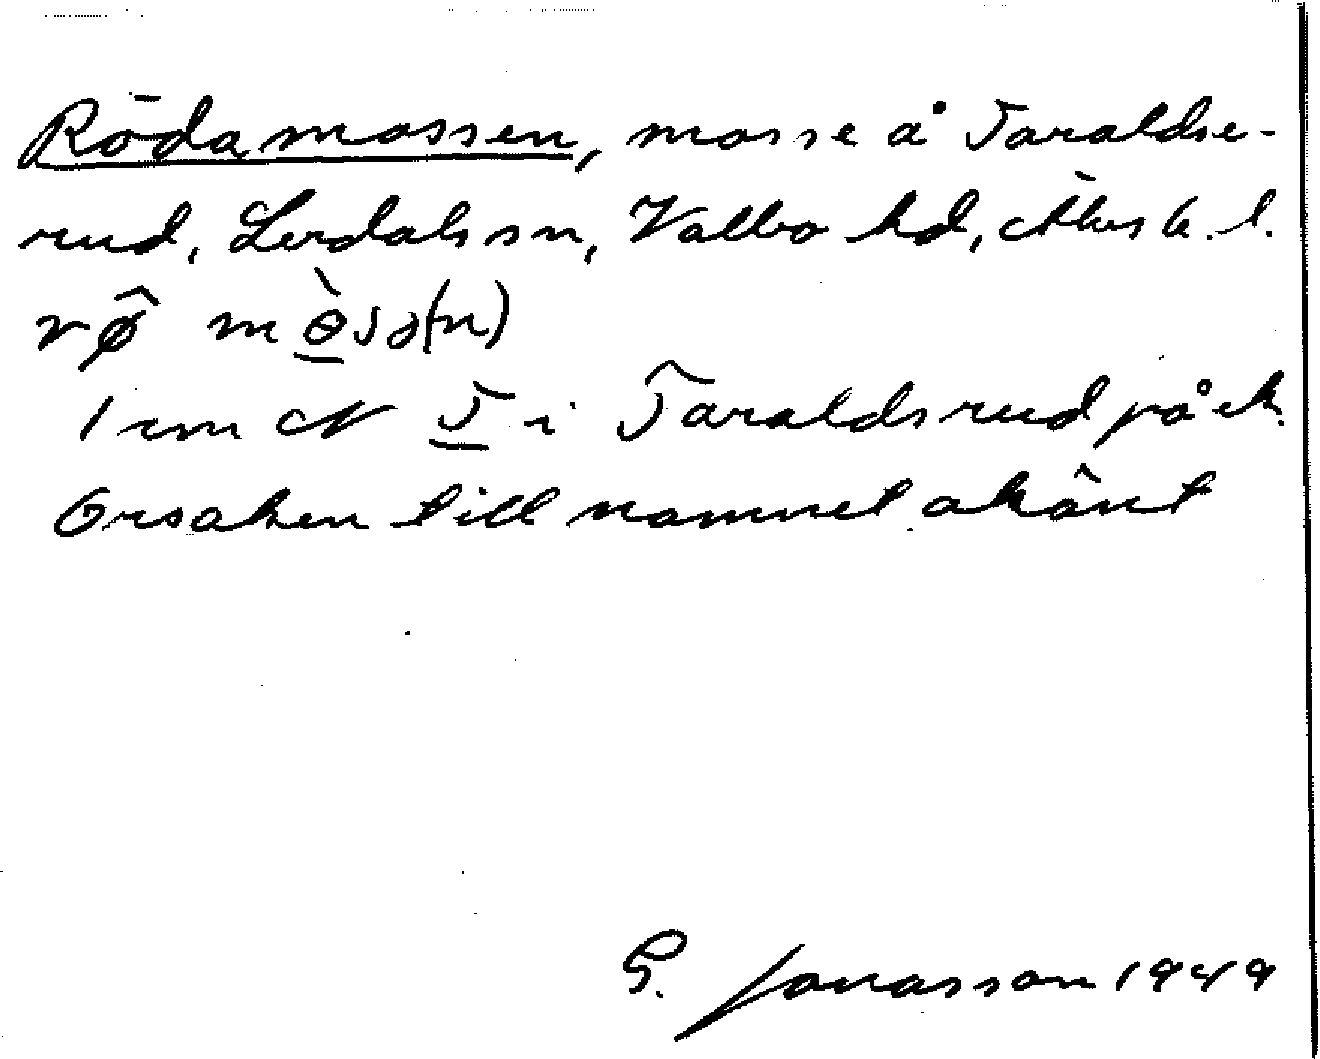 Rödamossen, mosse å Taraldse-
rud, Lerdals sn, Valbo hd, Älvsb. l.
rø̂ mɵ̀sə(n)
1 cm N T i Taraldsrud på ek.
Orsaken till namnet okänt
G. Jonasson 1949